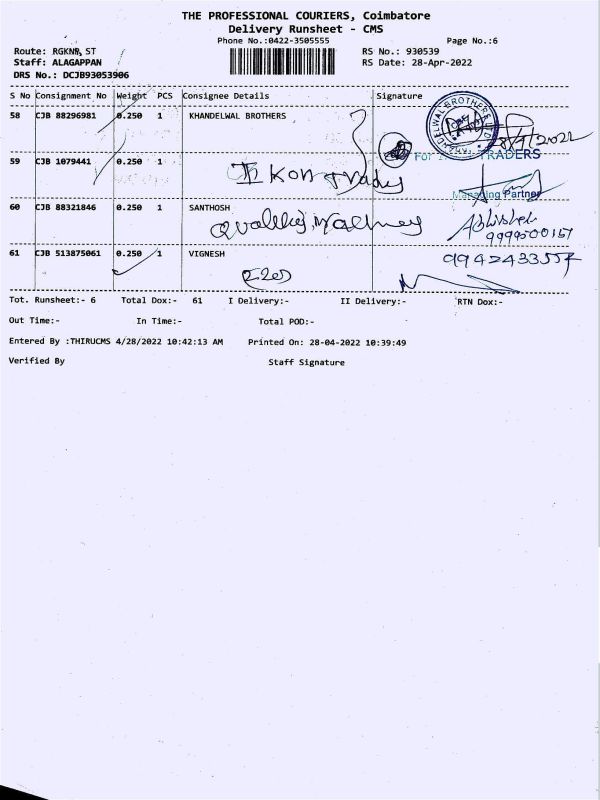 THE PROFESSIONAL COURIERS, Coimbatore
Delivery Runsheet - CMS
Phone No.:0422-3505555 Page No.:6
Route: RGKNR, ST RS No.: 930539
Staff: ALAGAPPAN RS Date: 28-Apr-2022
DRS No.: DCJB93053906
S No Consignment No Weight PCS Consignee Details Signature
58 CJB 88296981 0.250 1 KHANDELWAL BROTHERS
28/4/2022
59 CJB 1079441 0.250 1 For TRADERS
Ikon Managing Partner
60 CJB 88321846 0.250 1 SANTHOSH
Abhishek
9999500157
61 CJB 513875061 0.250 1 VIGNESH 9942433557
Tot. Runsheet:- 6 Total Dox:- 61 I Delivery:- II Delivery:- RTN Dox:-
Out Time:- In Time:- Total POD:-
Entered By :THIRUCMS 4/28/2022 10:42:13 AM Printed On: 28-04-2022 10:39:49
Verified By Staff Signature